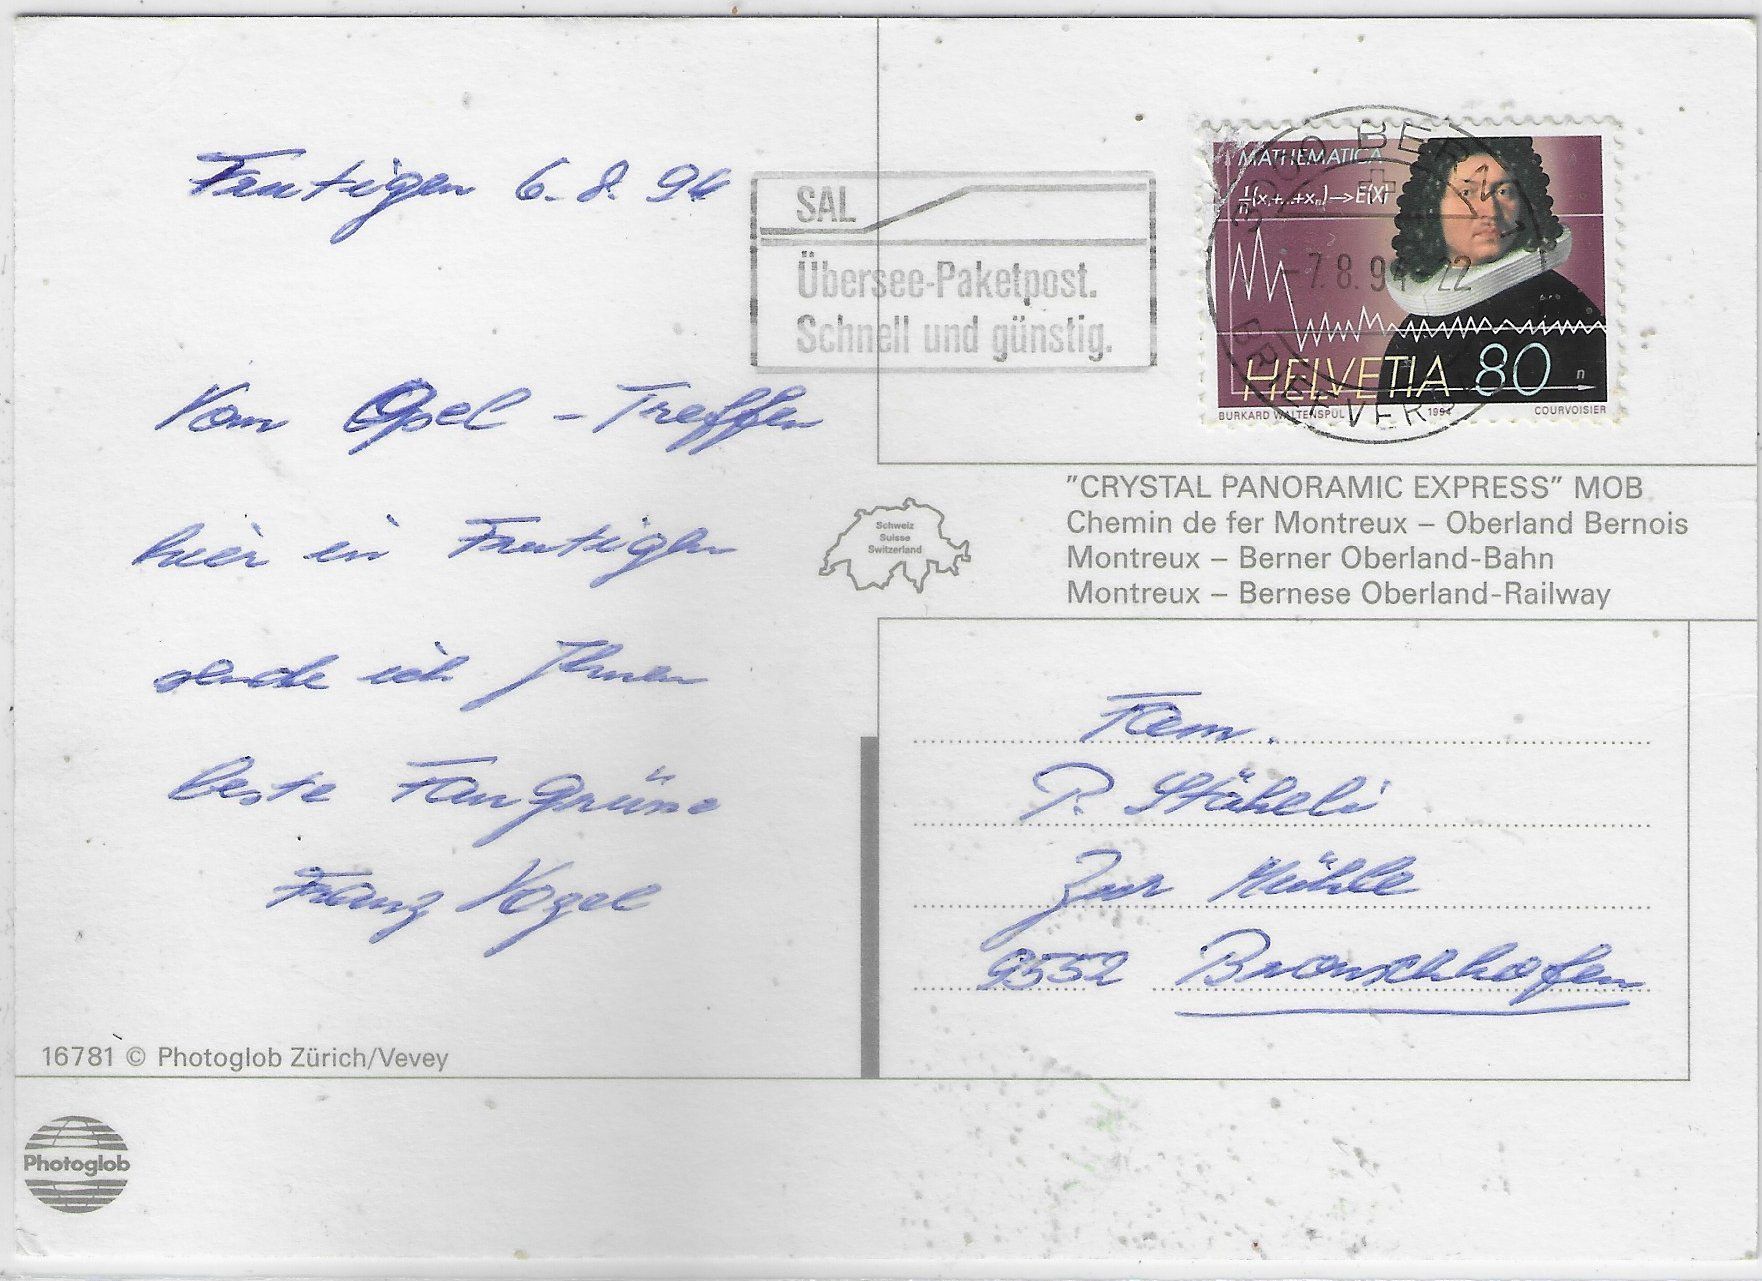 Frutigen 6.8.94
Vom Opel-Treffen
hier in Frutigen
sende ich Ihnen
beste Fan Grüsse
Franz Vogel
16781 © Photoglob Zürich/Vevey
Photoglob
SAL
Übersee-Paketpost.
Schnell und günstig.
MATHEMATICA
1/n(x₁+...+xₙ)→E(X)
HELVETIA 80
n
BURKARD WALTENSPÜL 1994 COURVOISIER
3000 BERN 1
-7.8.94-22
BRIEFVERS
"CRYSTAL PANORAMIC EXPRESS" MOB
Chemin de fer Montreux – Oberland Bernois
Montreux – Berner Oberland-Bahn
Montreux – Bernese Oberland-Railway
Schweiz
Suisse
Switzerland
Fam.
P. Stäheli
Zur Mühle
9552 Bronschhofen